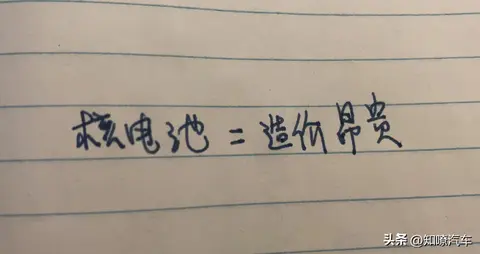 核电池=造价昂贵
头条 @知嘹汽车